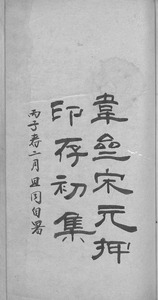 韋壘宋元押
印存初集
丙子春二月且同自署